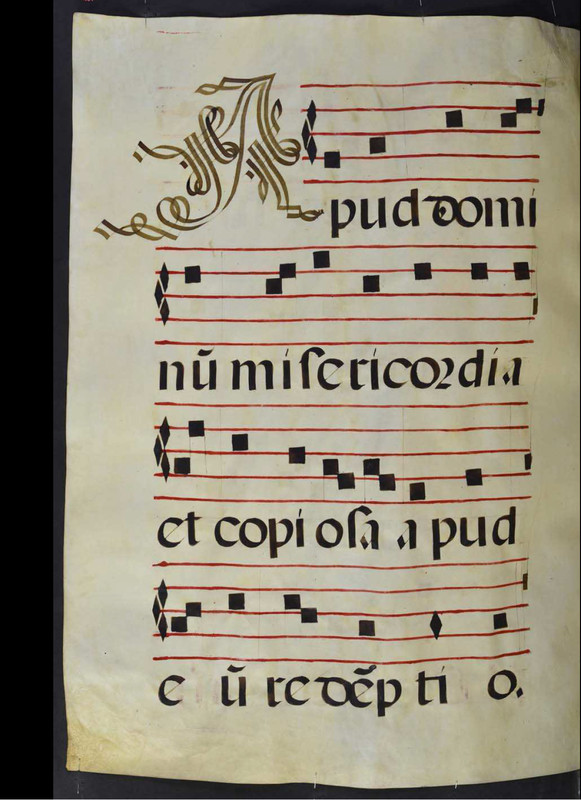 Apud domi
nũ misericordia
et copiosa apud
eũ redẽptio.